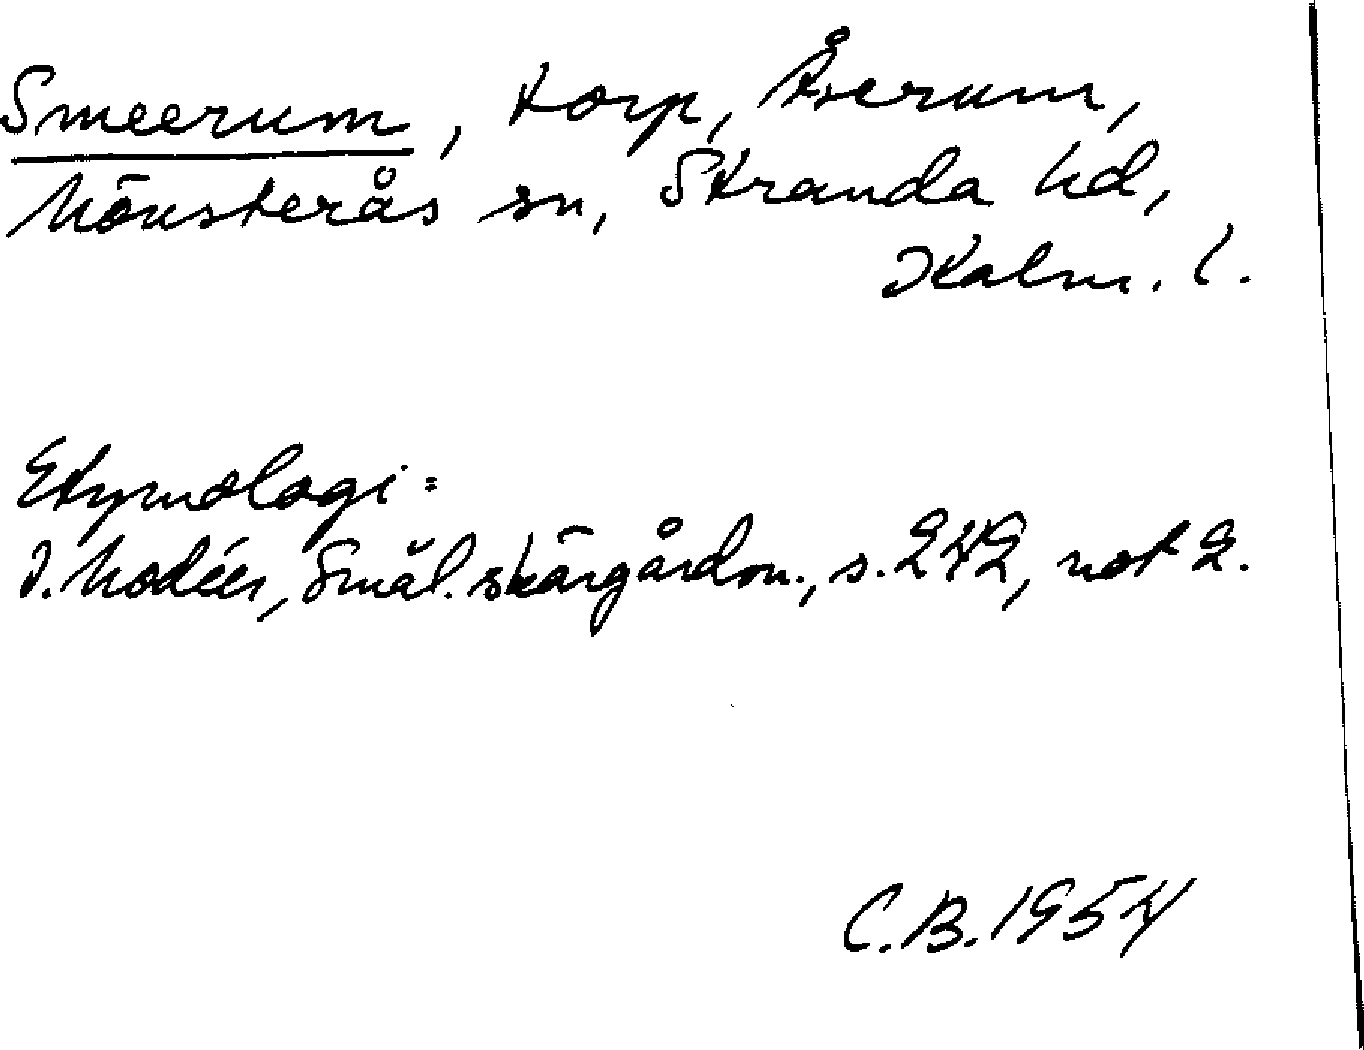 Smeerum, torp, Åserum,
Mönsterås sn, Stranda hd,
Kalm. l.
Etymologi:
I. Modéer, Smål. skärgårdsn., s. 242, not 2.
C.B. 1954